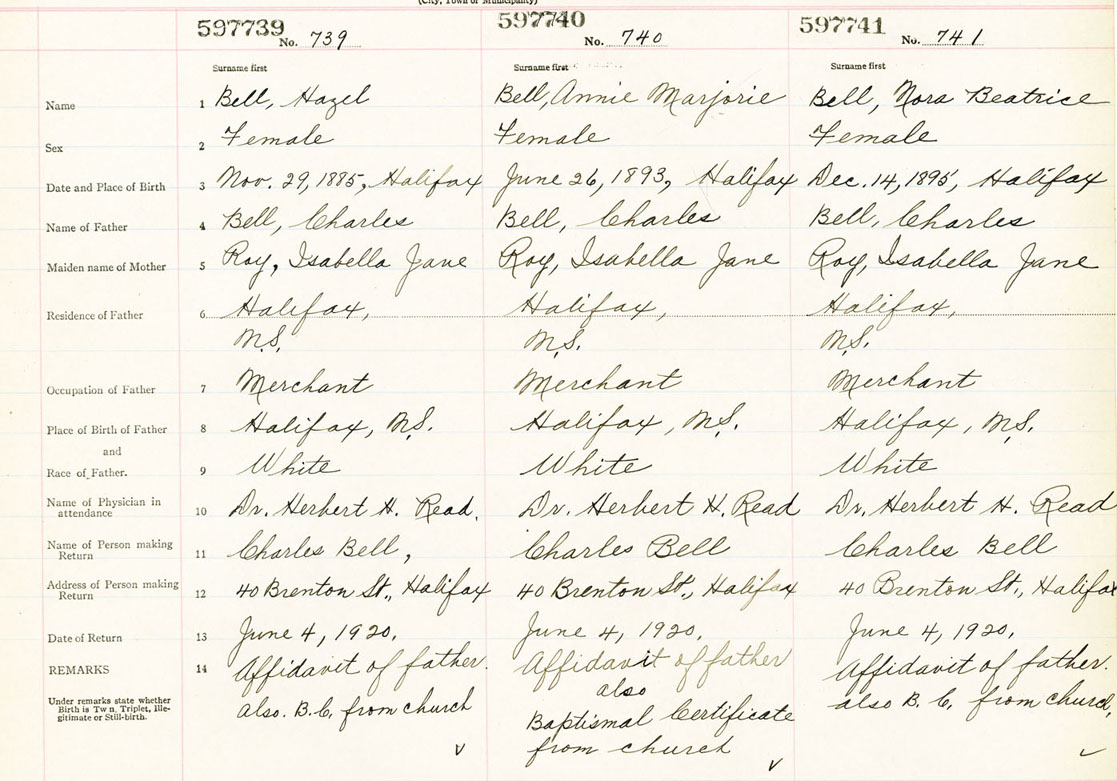 (City, Town or Municipality)
597739 No. 739 597740 No. 740 597741 No. 741
Surname first Surname first Surname first
Name 1 Bell, Hazel Bell, Annie Marjorie Bell, Nora Beatrice
Sex 2 Female Female Female
Date and Place of Birth 3 Nov. 29, 1885, Halifax June 26, 1893, Halifax Dec. 14, 1895, Halifax
Name of Father 4 Bell, Charles Bell, Charles Bell, Charles
Maiden name of Mother 5 Roy, Isabella Jane Roy, Isabella Jane Roy, Isabella Jane
Residence of Father 6 Halifax, Halifax, Halifax,
N.S. N.S. N.S.
Occupation of Father 7 Merchant Merchant Merchant
Place of Birth of Father 8 Halifax, N.S. Halifax, N.S. Halifax, N.S.
and
Race of Father. 9 White White White
Name of Physician in
attendance 10 Dr. Herbert H. Read. Dr. Herbert H. Read Dr. Herbert H. Read
Name of Person making
Return 11 Charles Bell, Charles Bell Charles Bell
Address of Person making
Return 12 40 Brenton St., Halifax 40 Brenton St., Halifax 40 Brenton St., Halifax
Date of Return 13 June 4, 1920. June 4, 1920. June 4, 1920.
REMARKS 14 Affidavit of father. Affidavit of father Affidavit of father.
Under remarks state whether
Birth is Tw n, Triplet, Ille-
gitimate or Still-birth.
also. B.C. from church also also B.C. from church,
Baptismal Certificate
from church